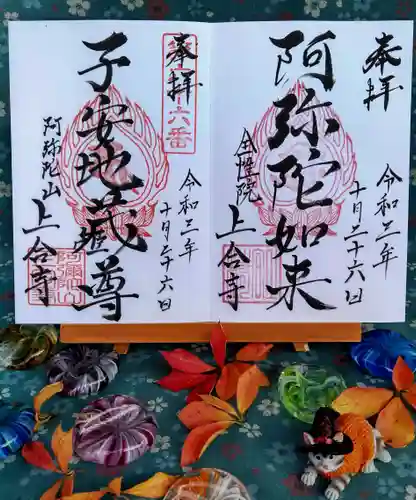 奉拝
阿弥陀如来
令和三年
十月二十六日
上合寺
奉拝
第十六番
子安地蔵尊
令和三年
十月二十六日
阿弥陀山
上合寺